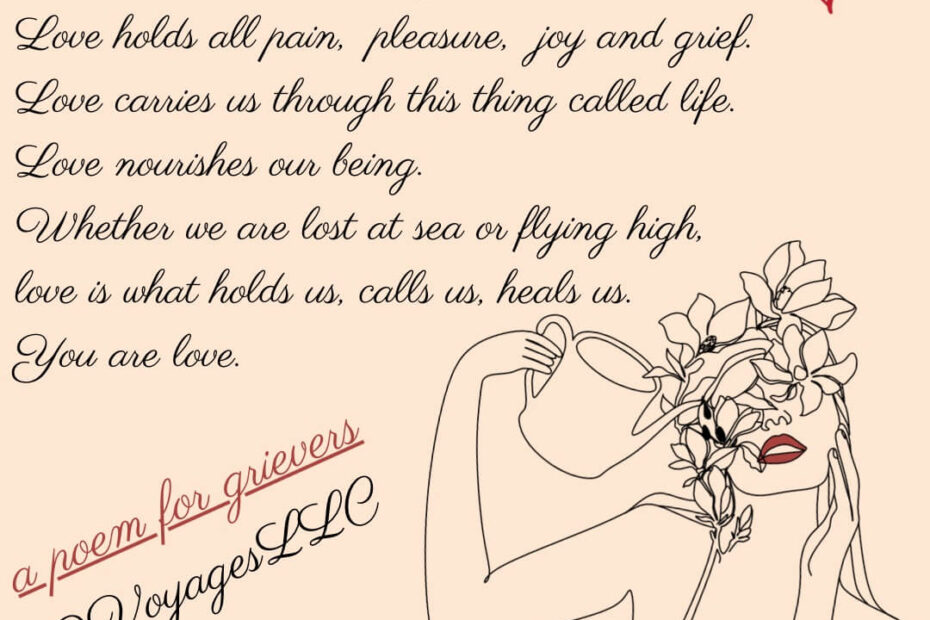 Love holds all pain, pleasure, joy and grief.
Love carries us through this thing called life.
Love nourishes our being.
Whether we are lost at sea or flying high,
love is what holds us, calls us, heals us.
You are love.
a poem for grievers
VoyagesLLC